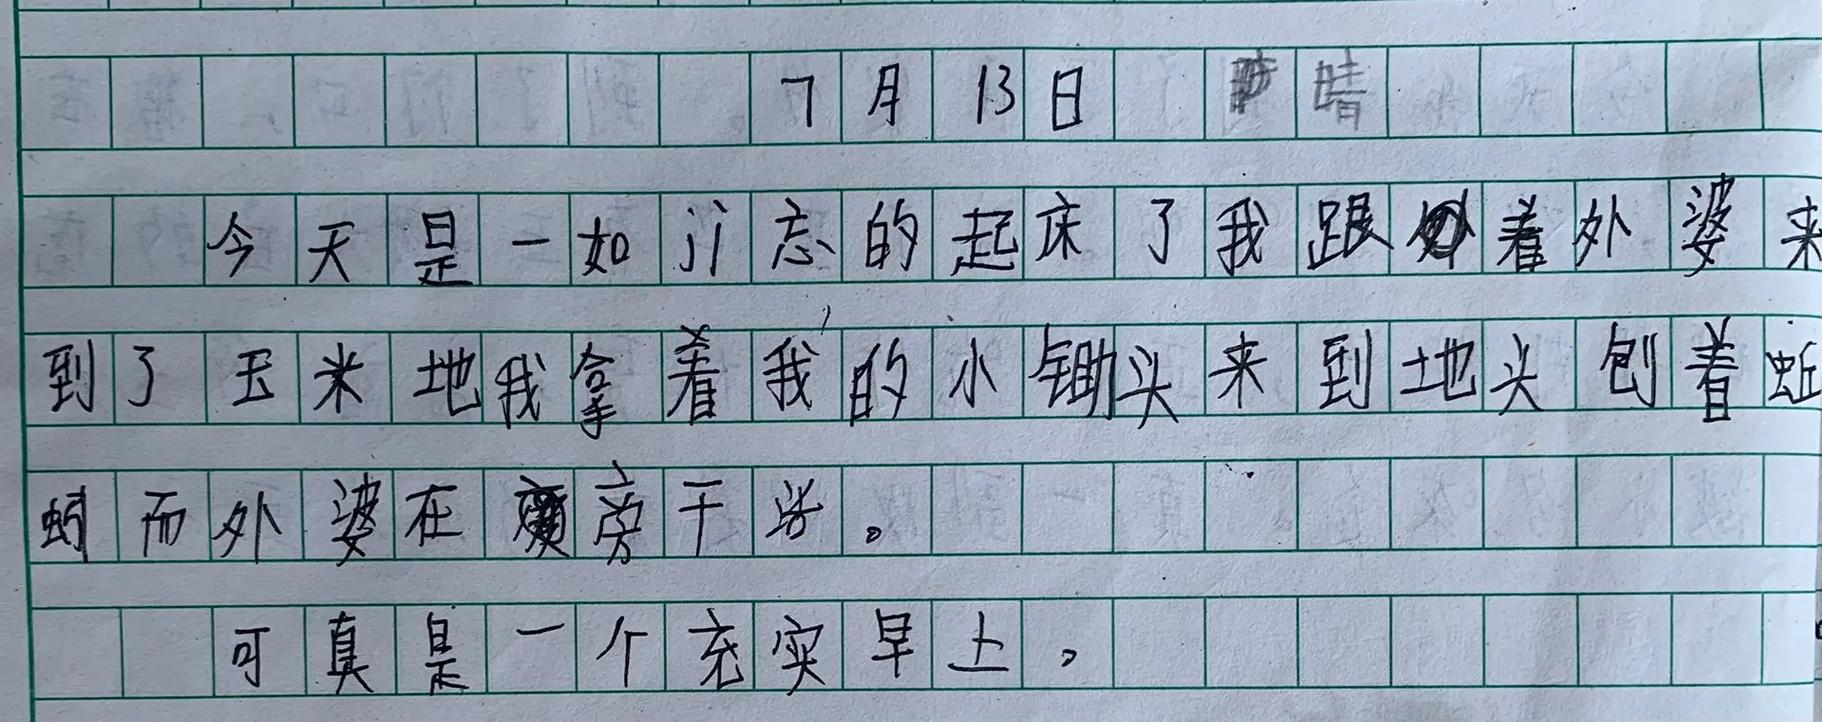 7月13日 晴
今天是一如忘的起床了我跟着外婆来
到了玉米地我拿着我的小锄头来到地头刨着蚯
蚓而外婆在旁干活。
可真是一个充实早上。